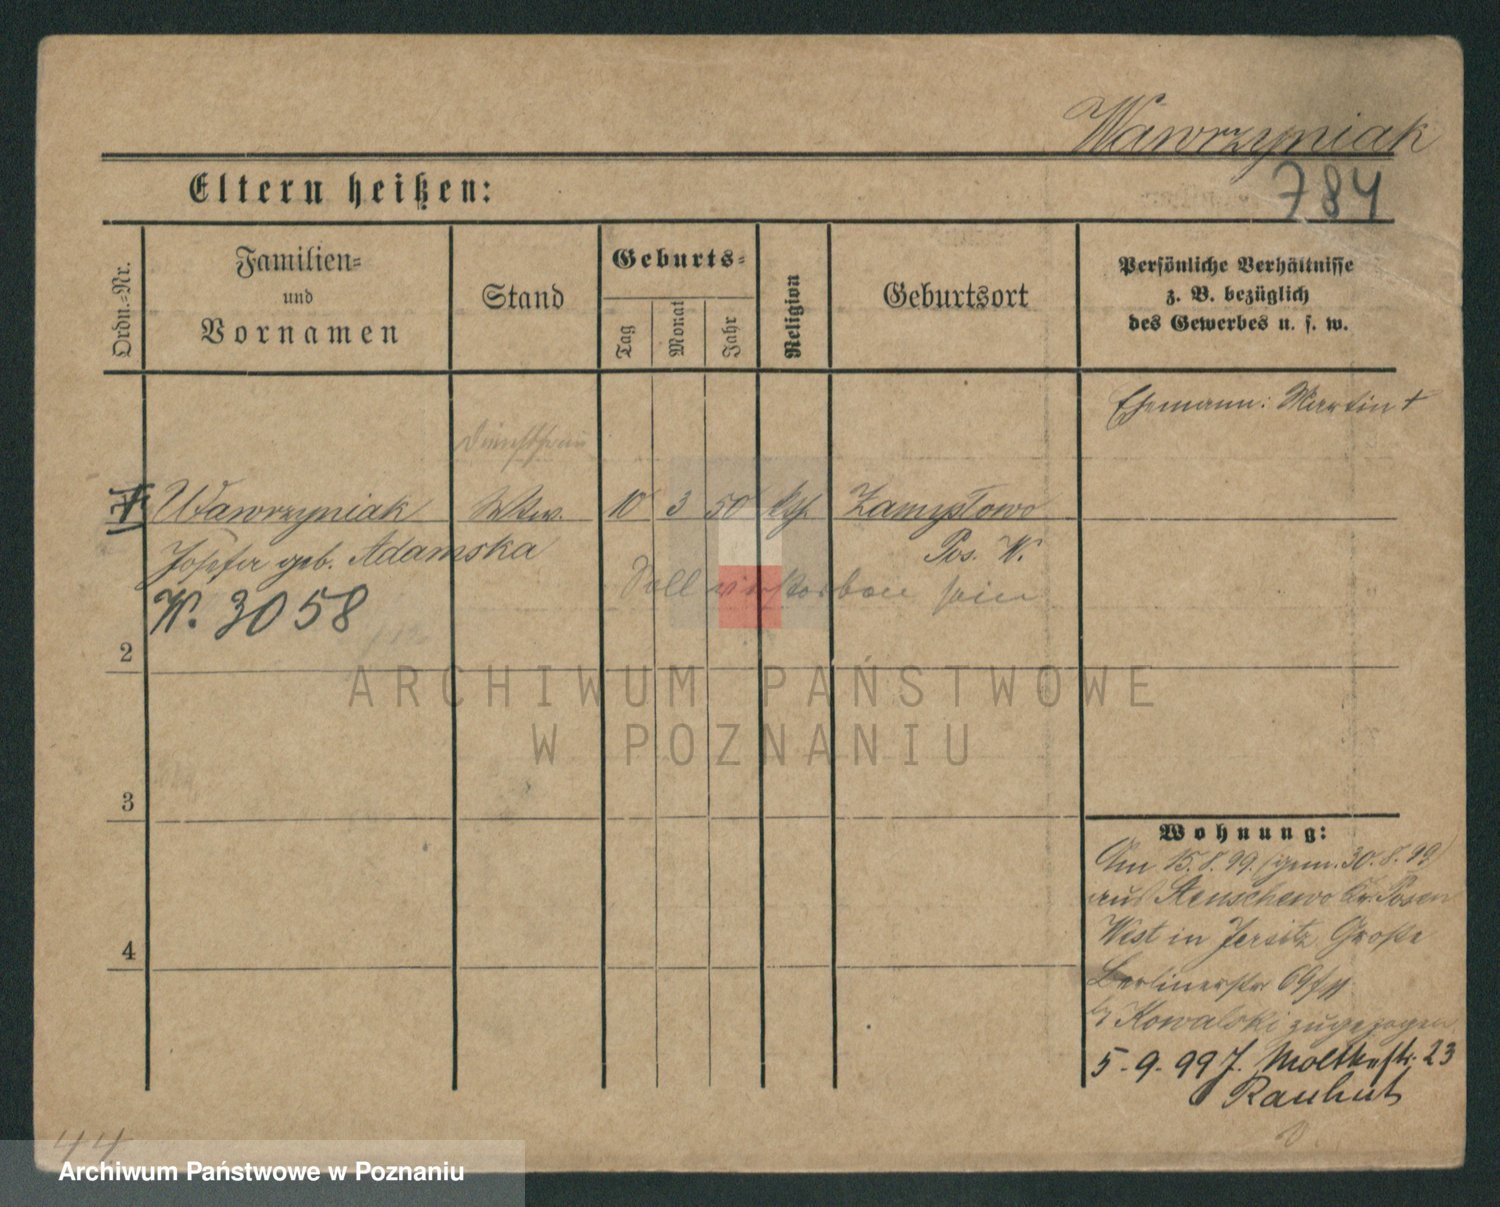 Wawrzyniak
784
Eltern heißen:
Ordn.=Nr.
Familien=
und
Vornamen
Stand
Geburts=
Tag
Monat
Jahr
Religion
Geburtsort
Persönliche Verhältnisse
z. B. bezüglich
des Gewerbes u. s. w.
Ehemann: Martin +
Dienstfrau
1 Wawrzyniak Wtw. 10 3 50 kth Zamysłowo
Josefa geb. Adamska Pos. W.
Soll verstorben sein
W. 3058
2
ARCHIWUM PAŃSTWOWE
W POZNANIU
3
Wohnung:
Am 15.8.99. (gem. 30.8.99)
aus Stenschewo Kr. Posen
West in Jersitz Große
Berlinerstr 69
b/ Kowalski zugezogen
5-9-99 J. Moltkestr. 23
Rauhut
4
44
Archiwum Państwowe w Poznaniu